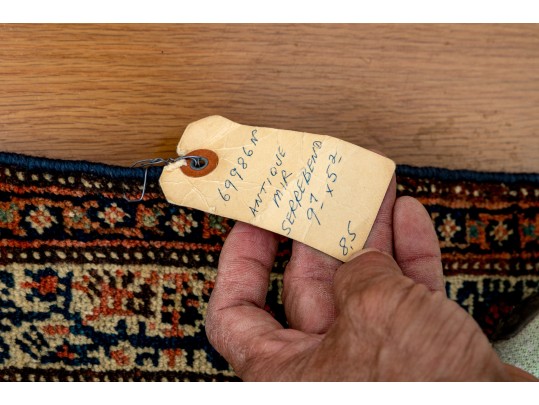 69986N
ANTIQUE
MIR
SERREBEND
9-7 x 5-2
85